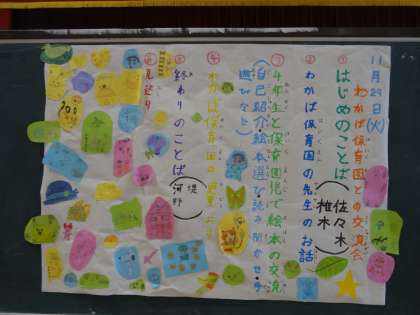 11月29日(火)
わかば保育園との交流会
①はじめのことば(佐々木 椎木)
②わかば保育園の先生のお話
③4年生と保育園児で絵本の交流
(自己紹介・絵本選び・読み聞かせ・手遊びなど)
④わかば保育園の園児より
⑤終わりのことば(堤 河野)
⑥見送り